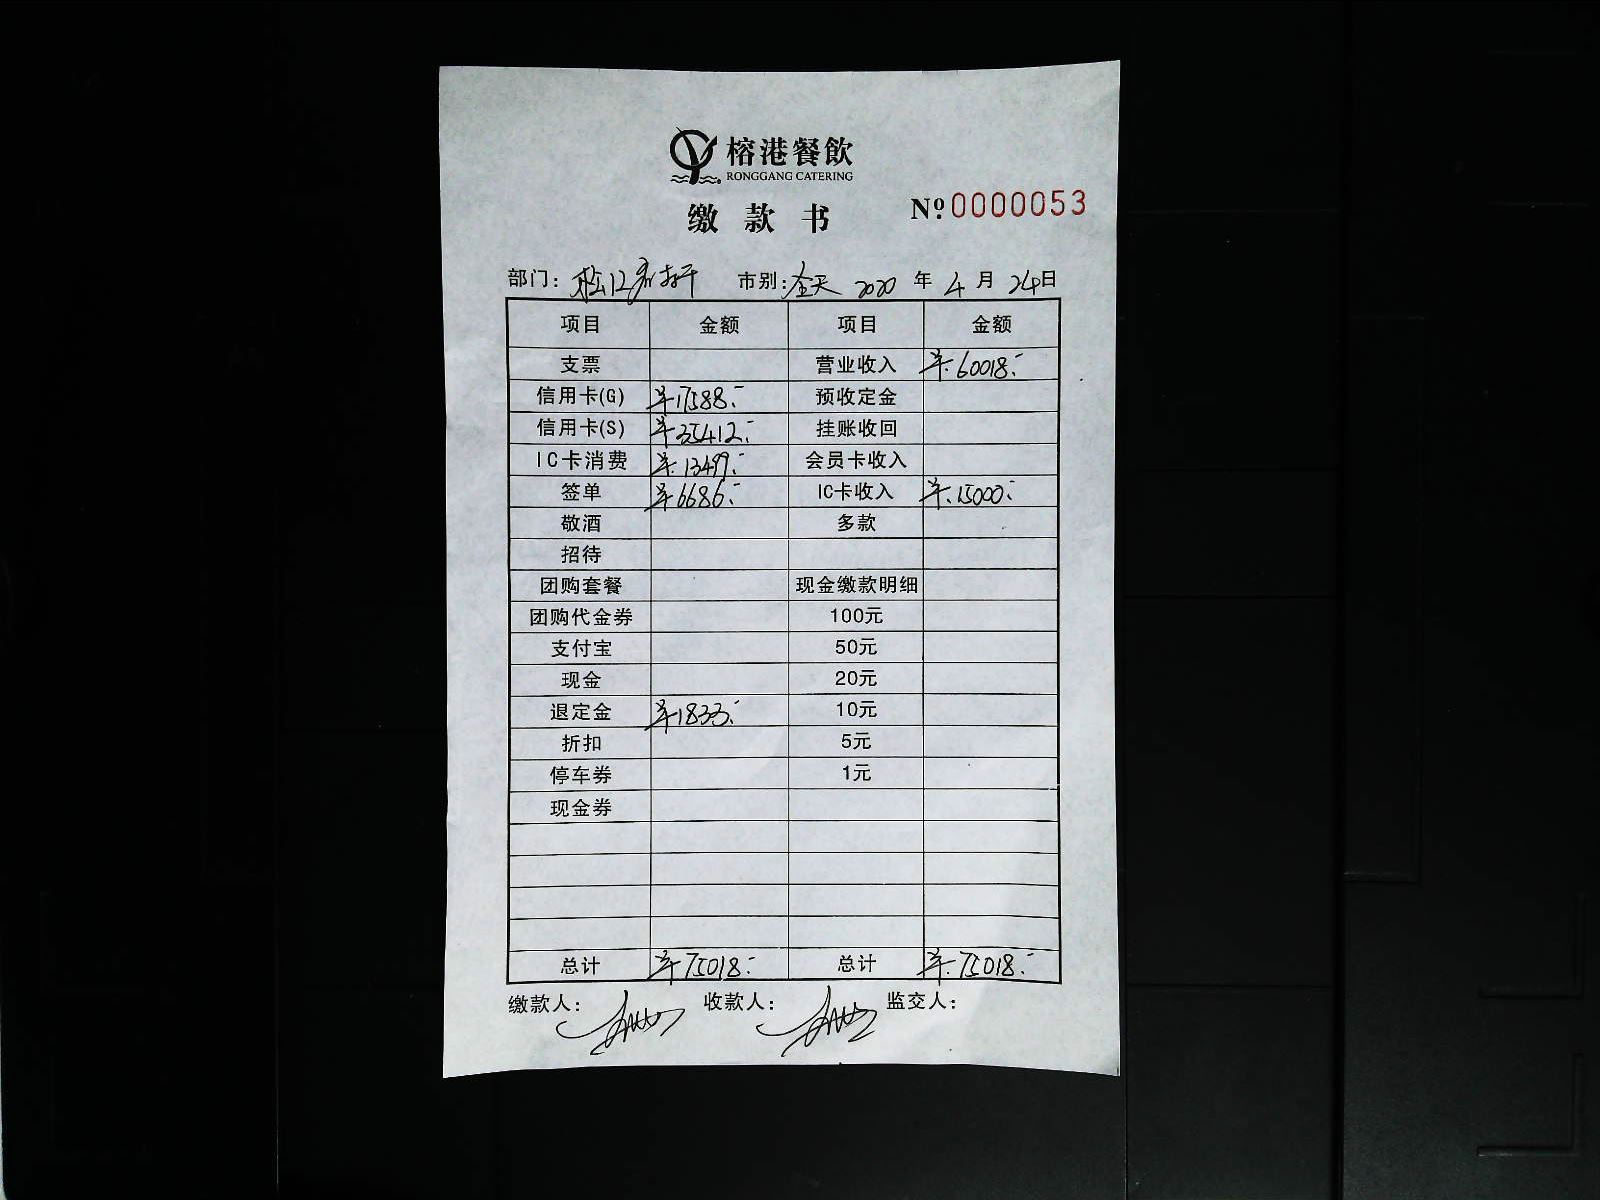 榕港餐飲
RONGGANG CATERING
缴款书
Nº 0000053
部门: 市别:全天 2020年4月24日
项目 金额 项目 金额
支票 营业收入 ¥60018.-
信用卡(G) ¥17588.- 预收定金
信用卡(S) ¥35412.- 挂账收回
IC卡消费 ¥13499.- 会员卡收入
签单 ¥6686.- IC卡收入 ¥15000.-
敬酒 多款
招待
团购套餐 现金缴款明细
团购代金券 100元
支付宝 50元
现金 20元
退定金 ¥1833.- 10元
折扣 5元
停车券 1元
现金券
总计 ¥75018.- 总计 ¥75018.-
缴款人: 收款人: 监交人: